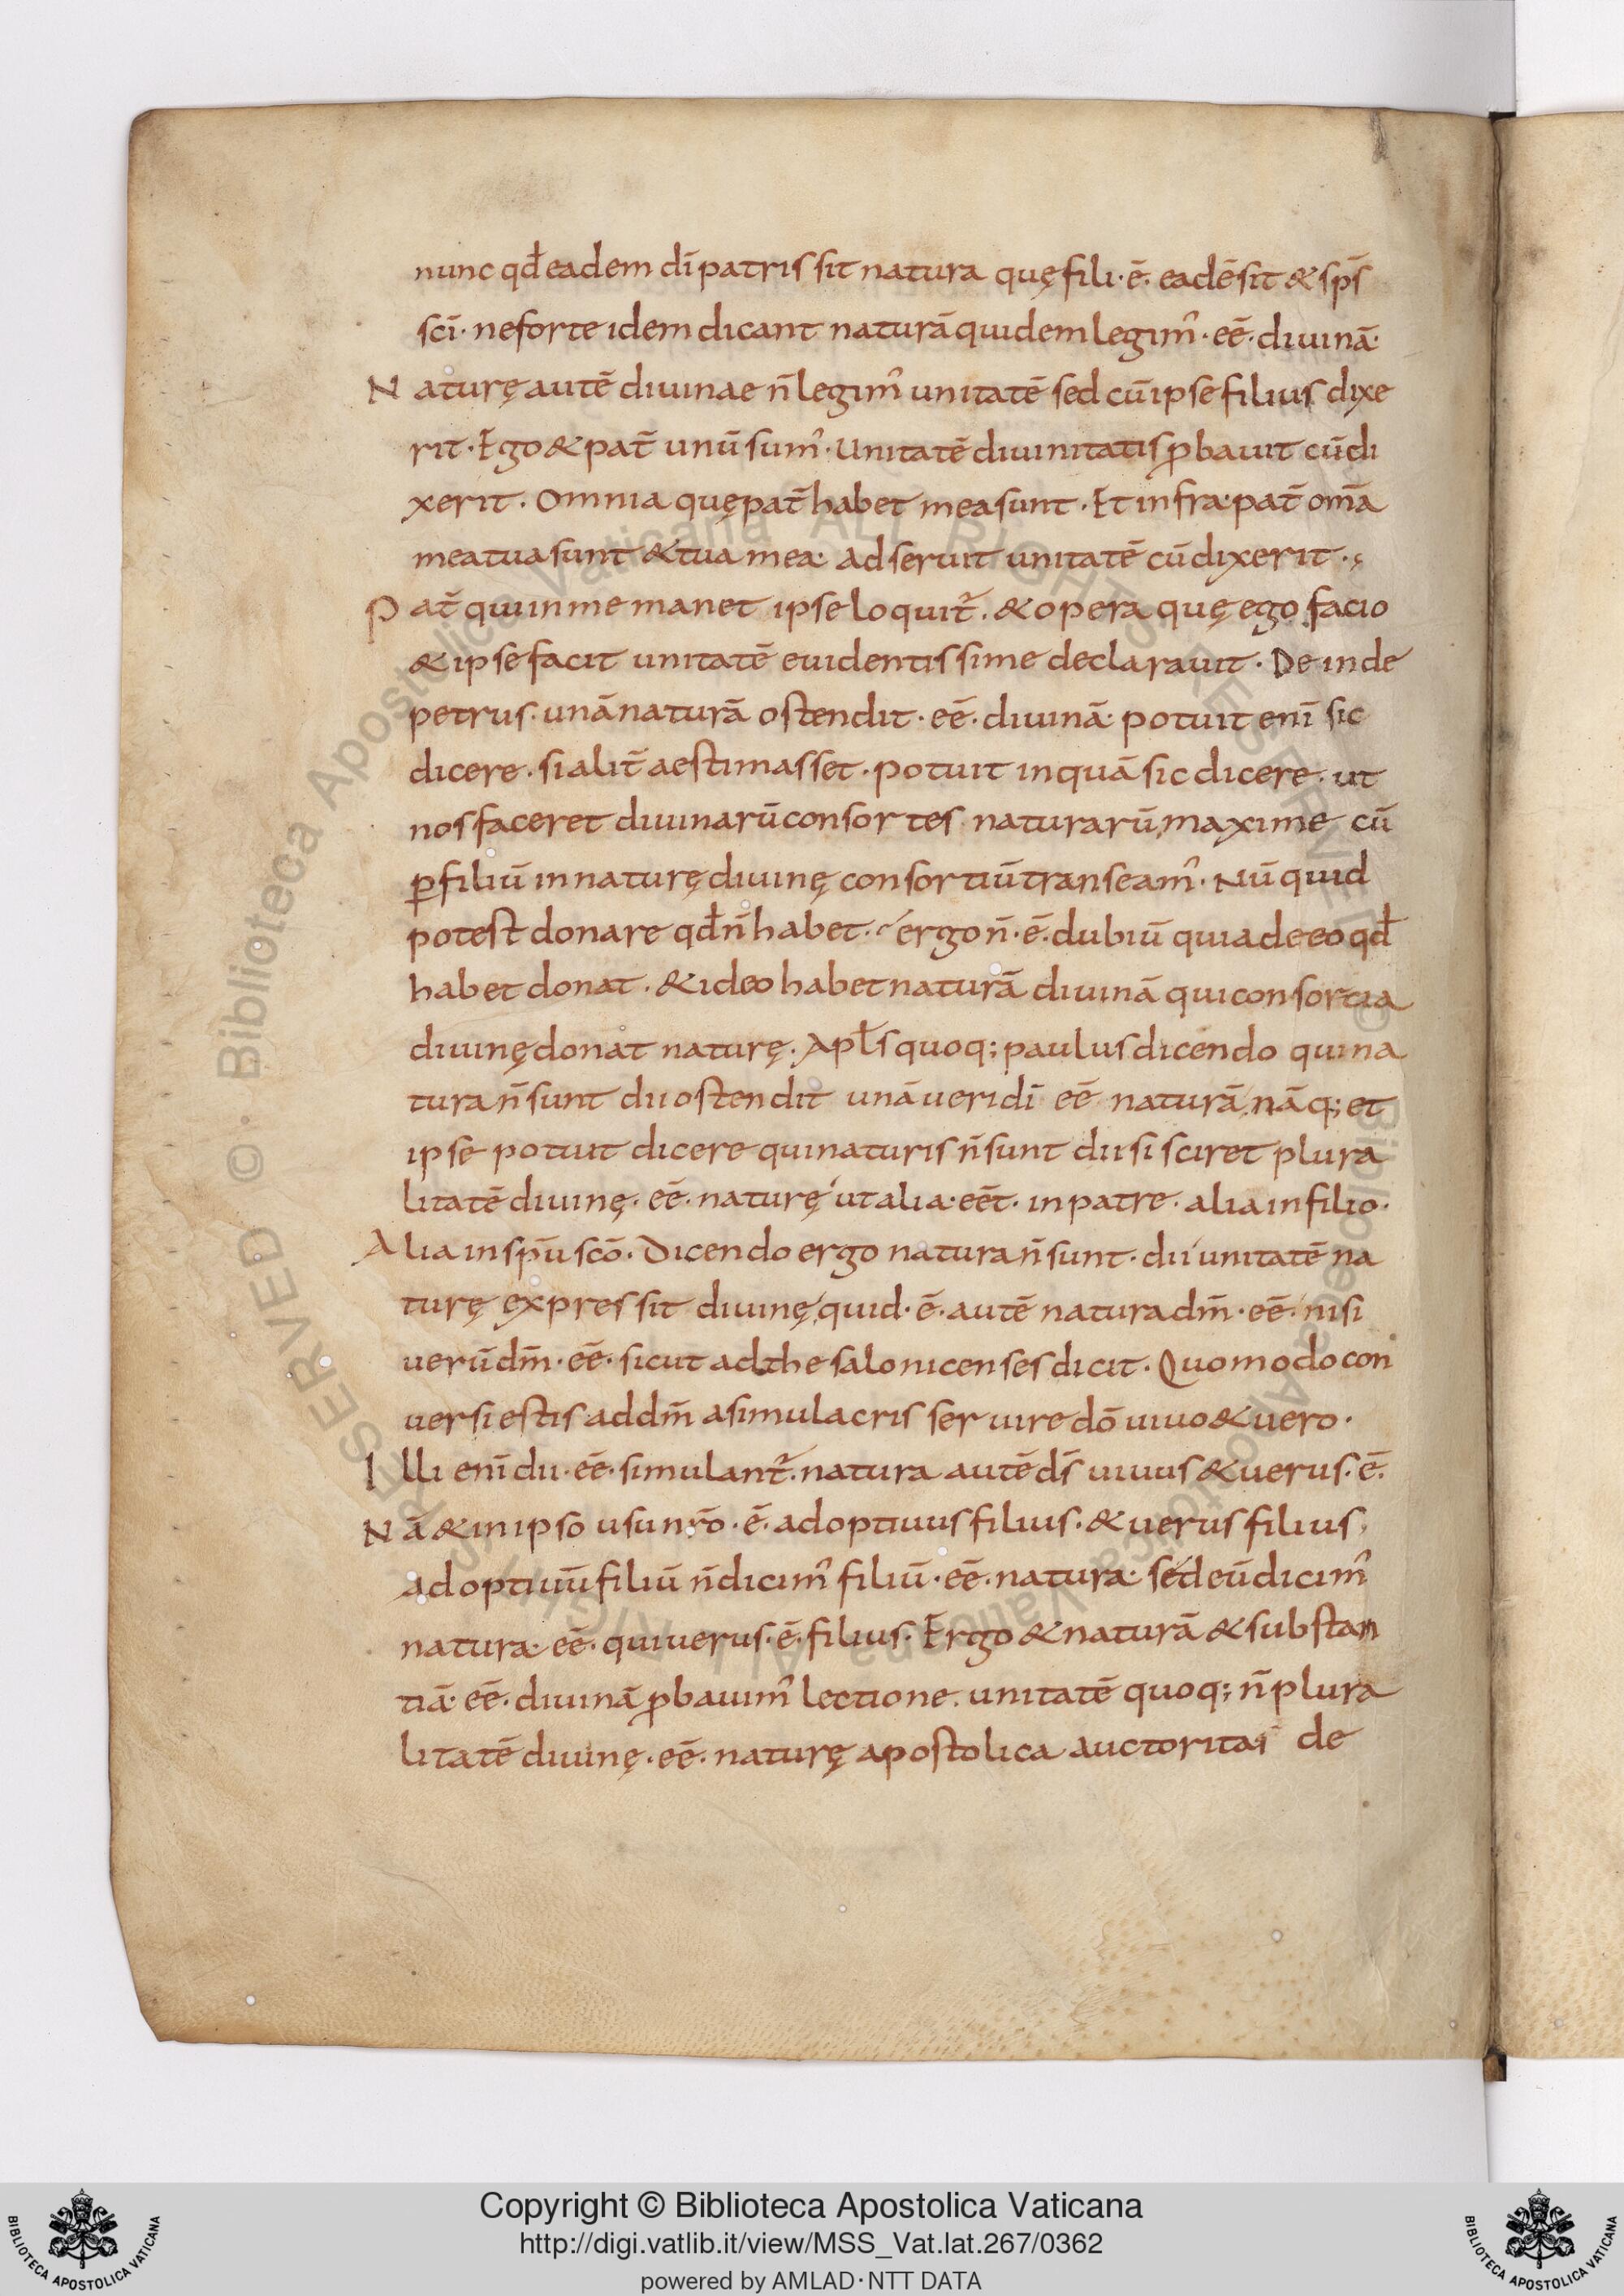 nunc qđ eadem dī patris sit natura quę fili · ē · eadē sit & sp̄s
sc̄i · ne forte idem dicant naturā quidem legim᾿ · eē · diuinā ·
Naturę autē diuinae n̄ legim᾿ unitatē sed cū ipse filius dixe
rit · Ego & pat̄ unū sum᾿ · Unitatē diuinitatis ꝓbauit cū di
xerit · Omnia quę pat̄ habet mea sunt · Et infra · pat̄ om̄a
mea tua sunt & tua mea · adseruit unitatē cū dixerit ·
Pat̄ qui in me manet ipse loquit᾿ · & opera quę ego facio
& ipse facit unitatē euidentissime declarauit · Deinde
petrus · unā naturā ostendit · eē · diuinā · potuit enī sic
dicere · si alit̄ aestimasset · potuit inquā sic dicere · ut
nos faceret diuinarū consortes naturarū, maxime cū
ꝑ filiū in naturę diuinę consortiū transeam᾿ · Nūquid
potest donare qđ n̄ habet · ergo n̄ · ē · dubiū quia de eo qđ
habet donat · & ideo habet naturā diuinā qui consortia
diuinę donat naturę · Apl̄s quoq; paulus dicendo qui na
tura n̄ sunt dii ostendit unā ueri dī eē naturā, nāq; et
ipse potuit dicere qui naturis n̄ sunt dii si sciret plura
litatē diuinę · eē · naturę ut alia · eēt · in patre · alia in filio ·
Alia in sp̄u scō · Dicendo ergo natura n̄ sunt · dii unitatē na
turę expressit diuinę, quid · ē · autē natura dm̄ · eē · nisi
uerū dm̄ · eē · sicut ad thesalonicenses dicit · Quomodo con
uersi estis ad dm̄ a simulacris seruire dō uiuo & uero ·
Illi enī dii · eē · simulant᾿ · natura autē ds̄ uiuus & uerus · ē ·
Nā & in ipso usu nr̄o · ē · adoptiuus filius · & uerus filius,
adoptiuū filiū n̄ dicim᾿ filiū · eē · natura · sed eū dicim᾿
natura · eē · qui uerus · ē · filius · Ergo & naturā & substan
tiā · eē · diuinā ꝓbauim᾿ lectione · unitatē quoq; n̄ plura
litatē diuinę · eē · naturę apostolica auctoritas de
Copyright © Biblioteca Apostolica Vaticana
http://digi.vatlib.it/view/MSS_Vat.lat.267/0362
powered by AMLAD · NTT DATA
BIBLIOTECA APOSTOLICA VATICANA
BIBLIOTECA APOSTOLICA VATICANA
© Biblioteca Apostolica Vaticana ALL RIGHTS RESERVED
© Biblioteca Apostolica Vaticana ALL RIGHTS RESERVED